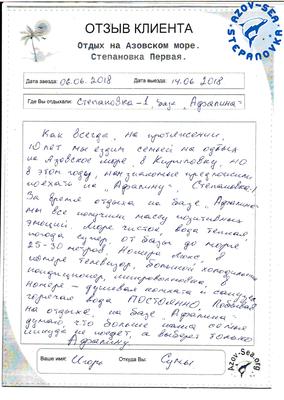 ОТЗЫВ КЛИЕНТА
Отдых на Азовском море.
Степановка Первая.
AZOV-SEA
STEPANOVKA
Дата заезда: 02.06.2018 Дата выезда: 14.06 2018
Где Вы отдыхали: Степановка-1, база „Адралина"
Как всегда, на протяжении
10 лет мы ездим семьей на отдых
на Азовское море, в Кирилловку, но
в этом году, нам знакомые предложили
поехать на „ Степановка-1
За время отдыха на базе
мы все получили массу позитивных
эмоций. Море чистое, вода теплая,
погода супер, от базы до моря
25-30 метров. Номера люкс, в
номере телевизор, большой холодильник
кондиционер, микроволновка, в
номере - душевая комната и санузел,
горячая вода ПОСТОЯННО. Побывав
на отдыхе, на базе
думаю, что больше наша семья
никуда не поедет, а выберет только
Ваше имя: Игорь Откуда Вы: Сумы
Azov-Sea.org